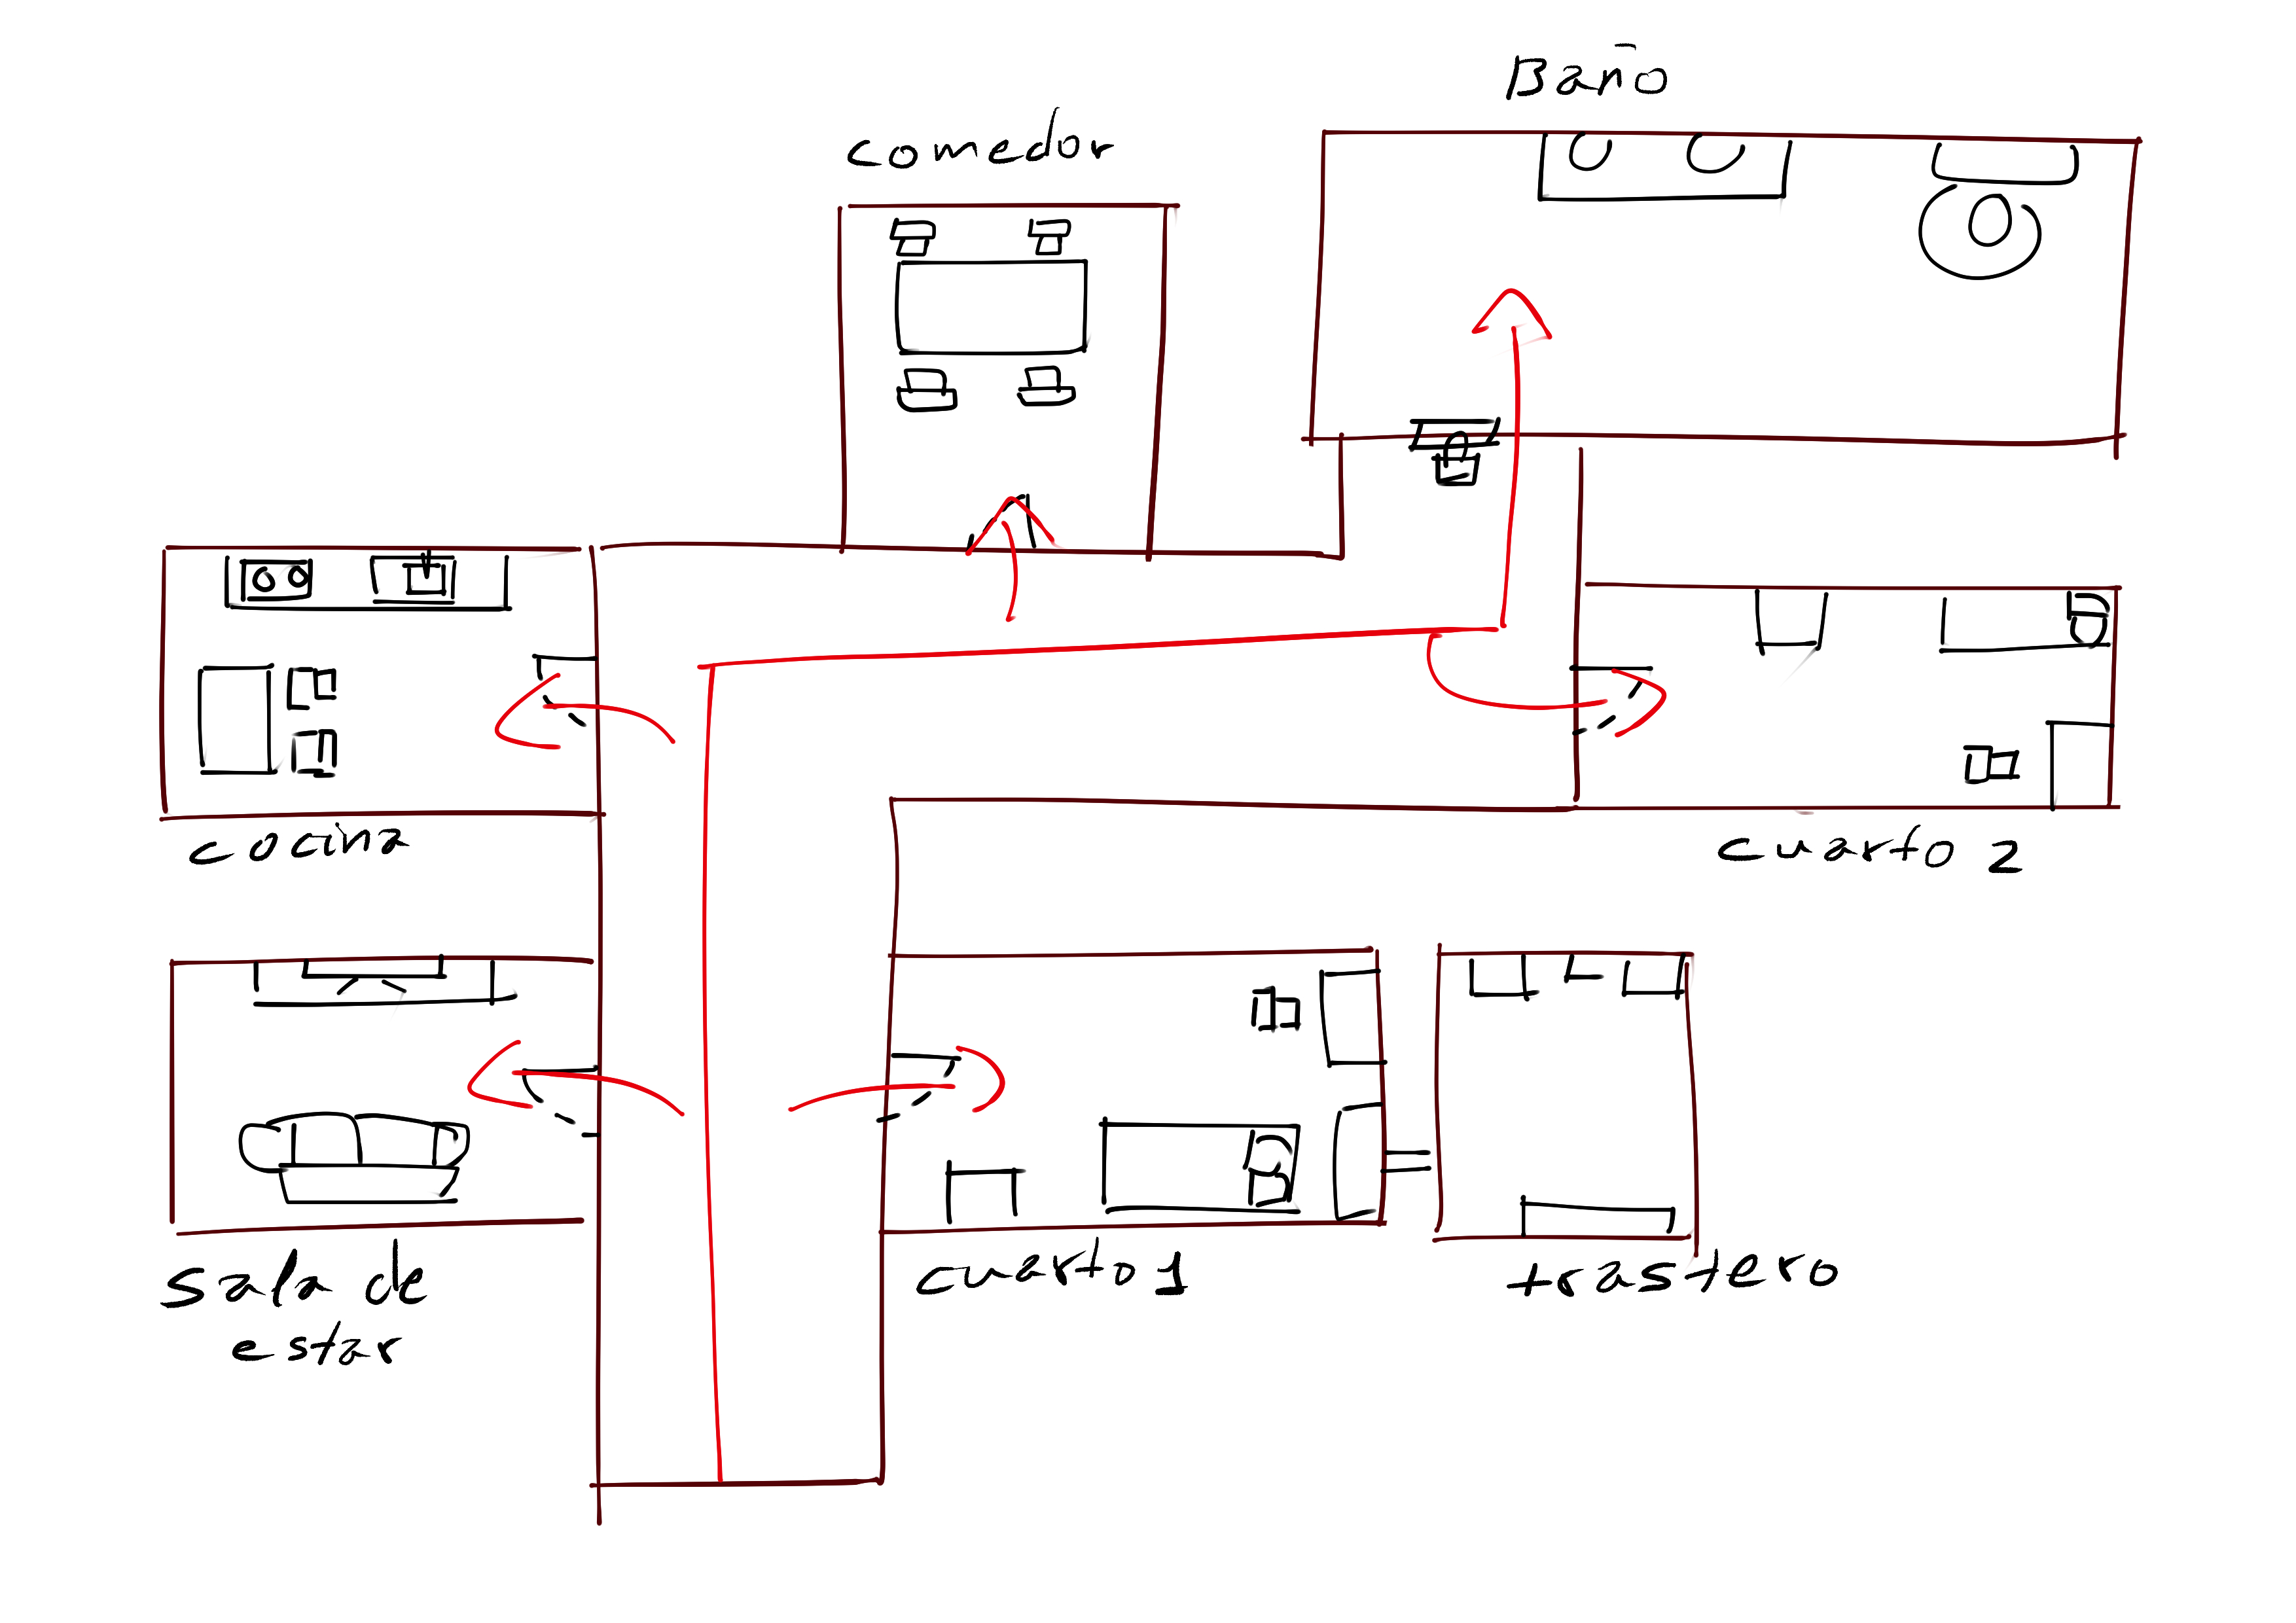 Baño
comedor
cocina
cuarto 2
sala de
estar
cuarto 1
trastero